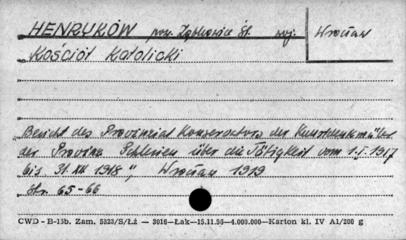 HENRYKÓW pow. Ząbkowice Śl. woj. Wrocław
Kościół Katolicki
"Bericht des Provinzial Konservators der Kunstdenkmäler
der Provinz Schlesien über die Tätigkeit vom 1.I.1917
bis 31.XII 1918", Wrocław 1919
Str. 65-66
CWD - B-15b. Zam. 5323/S/Łż — 3016—Łak—15.11.56—4.000.000—Karton kl. IV A1/200 g